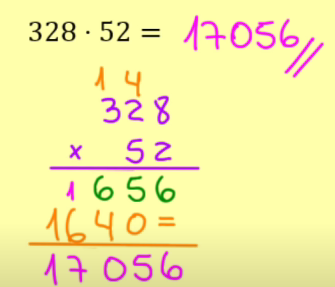 328 · 52 = 17056//
1 4
328
x 52
1 656
1640=
17056